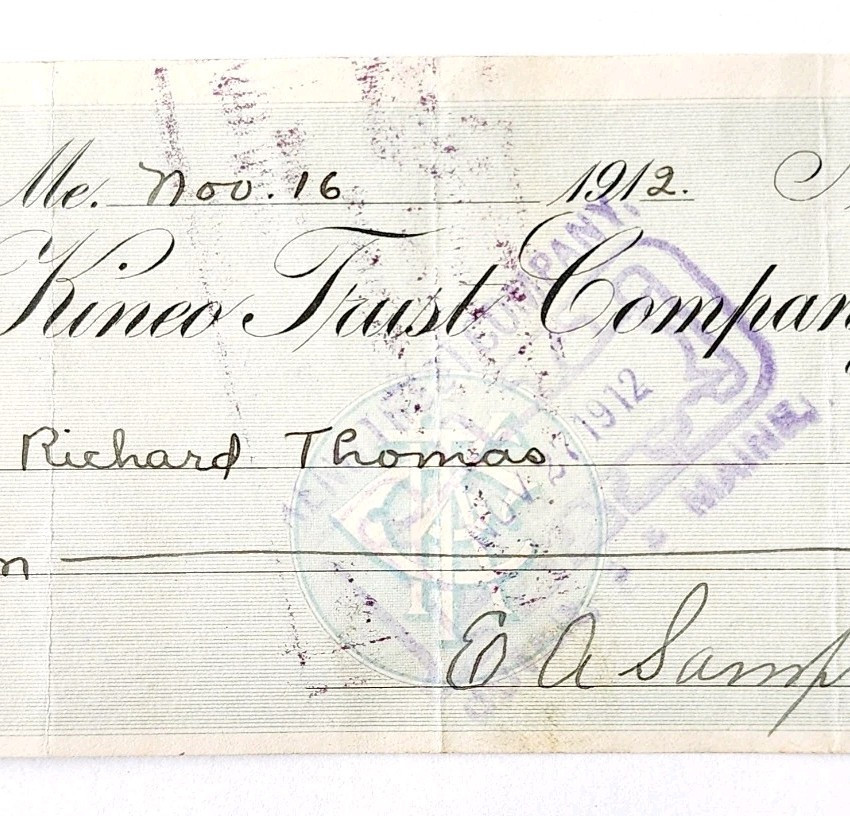 Me. Nov. 16 1912.
Kineo Trust Company
Richard Thomas
E A Samp
COMPANY.
NOV 27 1912
MAINE.
KTC